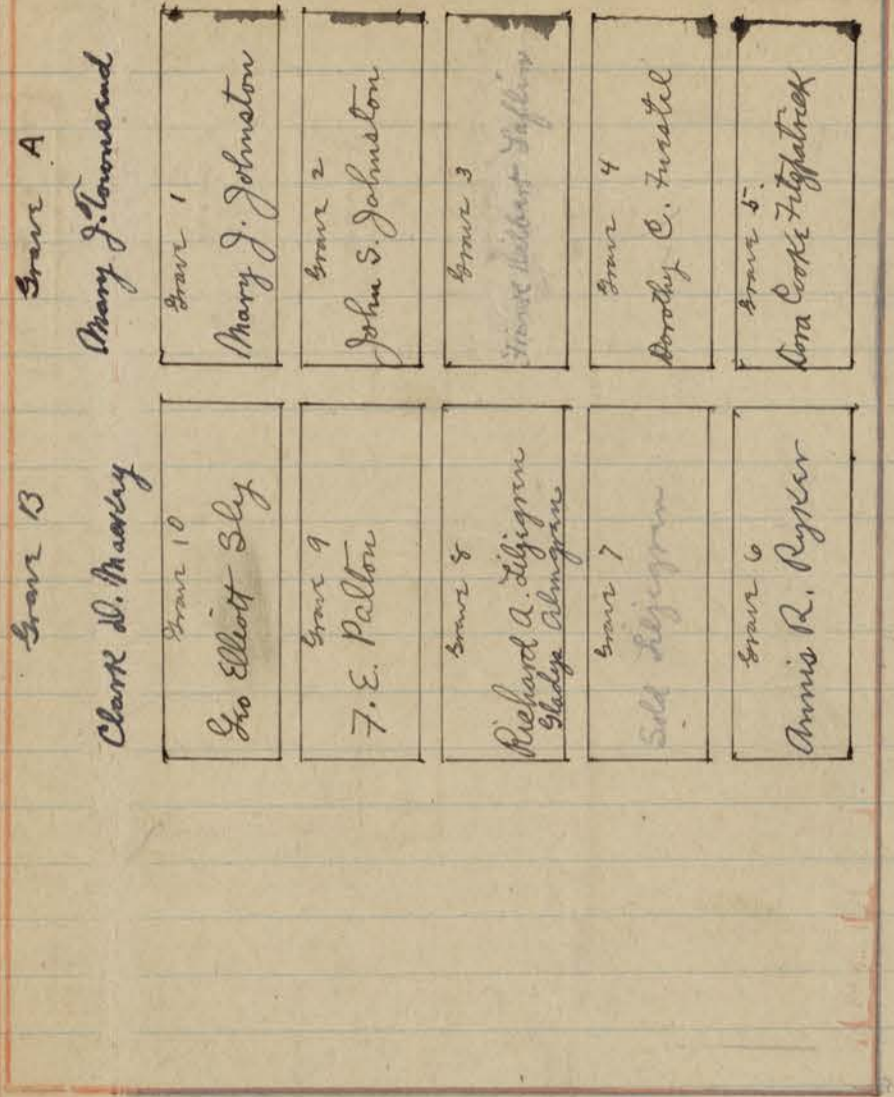 Grave A
Mary J. Townsend
Grave 1
Mary J. Johnston
Grave 2
John S. Johnston
Grave 3
Grave 4
Dorothy C.
Grave 5
Dora Cooke Fitzpatrick
Grave B
Clark D.
Grave 10
Geo Elliott Sly
Grave 9
F. E. Patton
Grave 8
Richard A. Liljegren
Gladys Almgren
Grave 7
Sold Liljegren
Grave 6
Annis R. Ryker